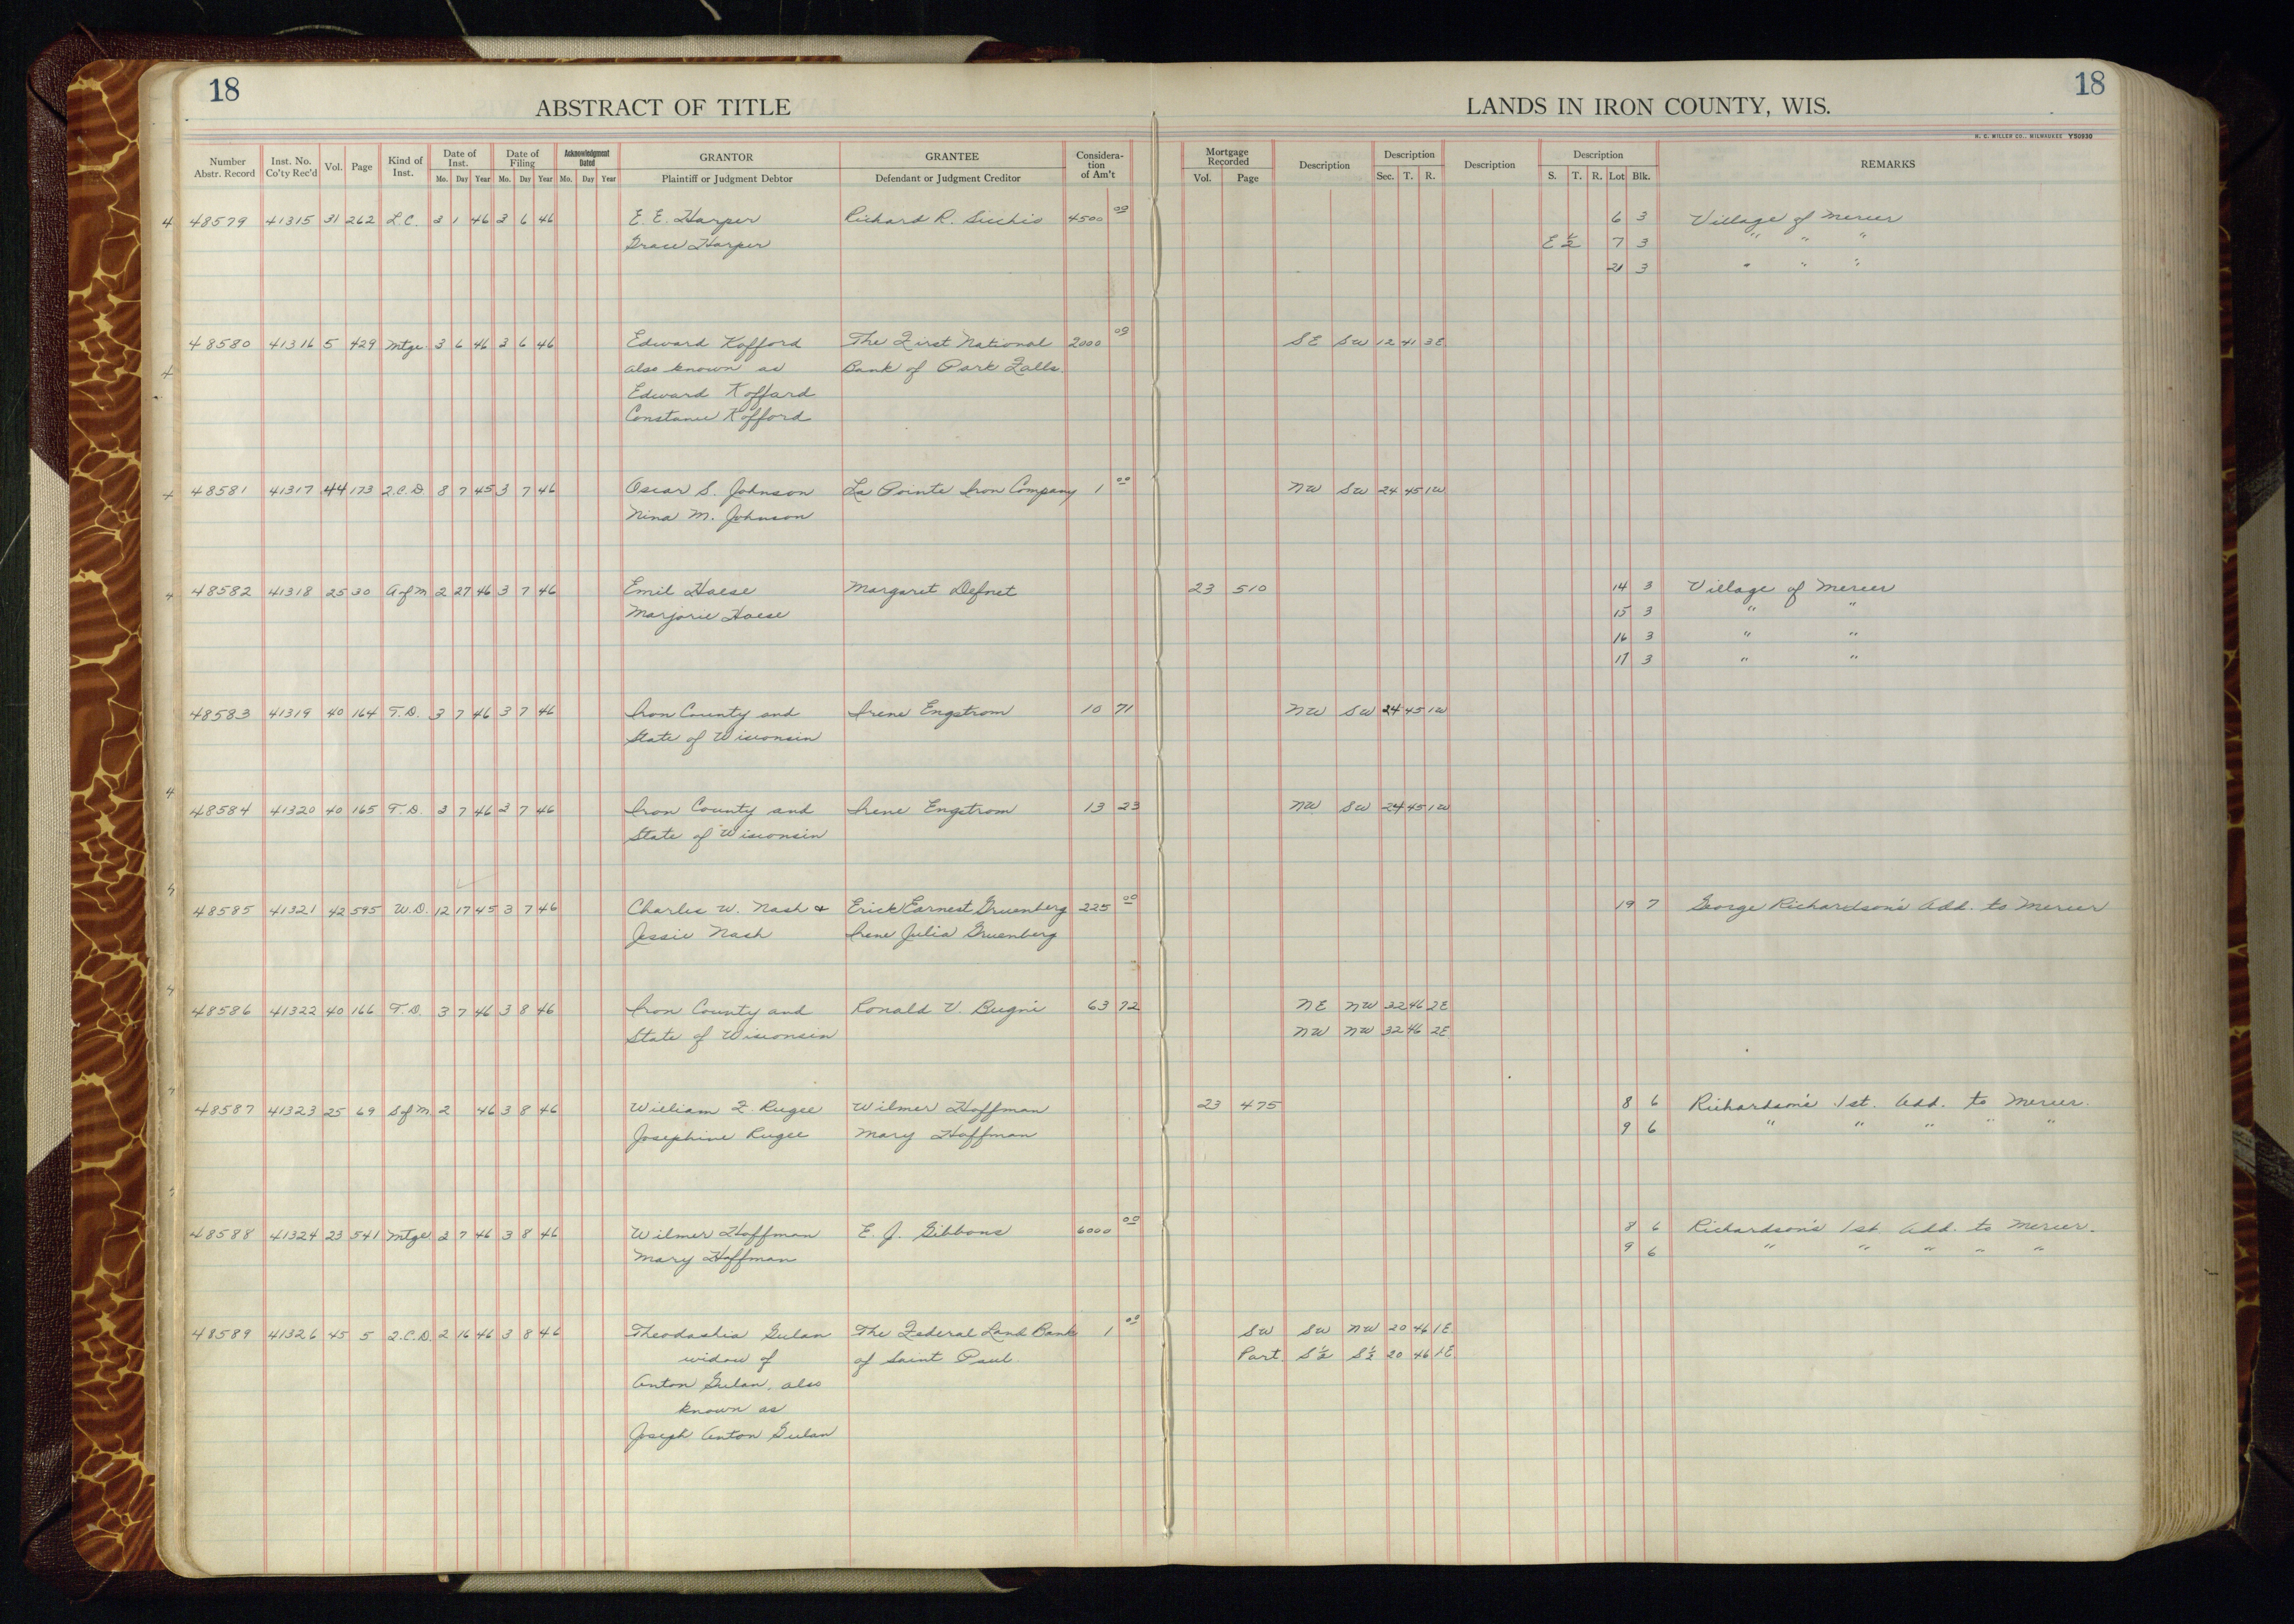 18
18
ABSTRACT OF TITLE
LANDS IN IRON COUNTY, WIS.
H. C. MILLER CO., MILWAUKEE Y50930
Number Abstr. Record Inst. No. Co'ty Rec'd Vol. Page Kind of Inst. Date of Inst. Date of Filing Acknowledgment Dated GRANTOR GRANTEE Consideration of Am't Mortgage Recorded Description Description Description Description REMARKS
Mo. Day Year Mo. Day Year Mo. Day Year Plaintiff or Judgment Debtor Defendant or Judgment Creditor Vol. Page Sec. T. R. S. T. R. Lot Blk.
4 48579 41315 31 262 L.C. 3 1 46 3 6 46 E. E. Harper Richard R. Sicchio 4500 00 6 3 Village of Mercer
Grace Harper E 1/2 7 3 " " "
21 3 " " "
48580 41316 5 429 Mtge. 3 6 46 3 6 46 Edward Kofford The First National 2000 00 SE SW 12 41 3E
also known as Bank of Park Falls
Edward Koffard
Constance Kofford
48581 41317 44 173 Q.C.D. 8 7 45 3 7 46 Oscar S. Johnson La Pointe Iron Company 1 00 NW SW 24 45 1W
Nina M. Johnson
48582 41318 25 30 A of M 2 27 46 3 7 46 Emil Haese Margaret Defnet 23 510 14 3 Village of Mercer
Marjorie Haese 15 3 " "
16 3 " "
17 3 " "
48583 41319 40 164 T.D. 3 7 46 3 7 46 Iron County and Irene Engstrom 10 71 NW SW 24 45 1W
State of Wisconsin
4
48584 41320 40 165 T.D. 3 7 46 3 7 46 Iron County and Irene Engstrom 13 23 NW SW 24 45 1W
State of Wisconsin
48585 41321 42 595 W.D. 12 17 45 3 7 46 Charles W. Nash & Erick Earnest Gruenberg 225 00 19 7 George Richardson's Add. to Mercer
Jessie Nash Irene Julia Gruenberg
48586 41322 40 166 T.D. 3 7 46 3 8 46 Iron County and Ronald V. Bugni 63 72 NE NW 32 46 2E
State of Wisconsin NW NW 32 46 2E
48587 41323 25 69 S of M 2 46 3 8 46 William F. Rugee Wilmer Hoffman 23 475 8 6 Richardson's 1st. Add. to Mercer.
Josephine Rugee Mary Hoffman 9 6 " " " " "
48588 41324 23 541 Mtge 3 7 46 3 8 46 Wilmer Hoffman E. J. Gibbons 6000 00 8 6 Richardson's 1st Add. to Mercer.
Mary Hoffman 9 6 " " " " "
48589 41326 45 5 Q.C.D. 2 16 46 3 8 46 Theodashia Gulan The Federal Land Bank 1 00 SW SW NW 20 46 1E
widow of of Saint Paul. Part S 1/2 S 1/2 20 46 1E
Anton Gulan, also
known as
Joseph Anton Gulan